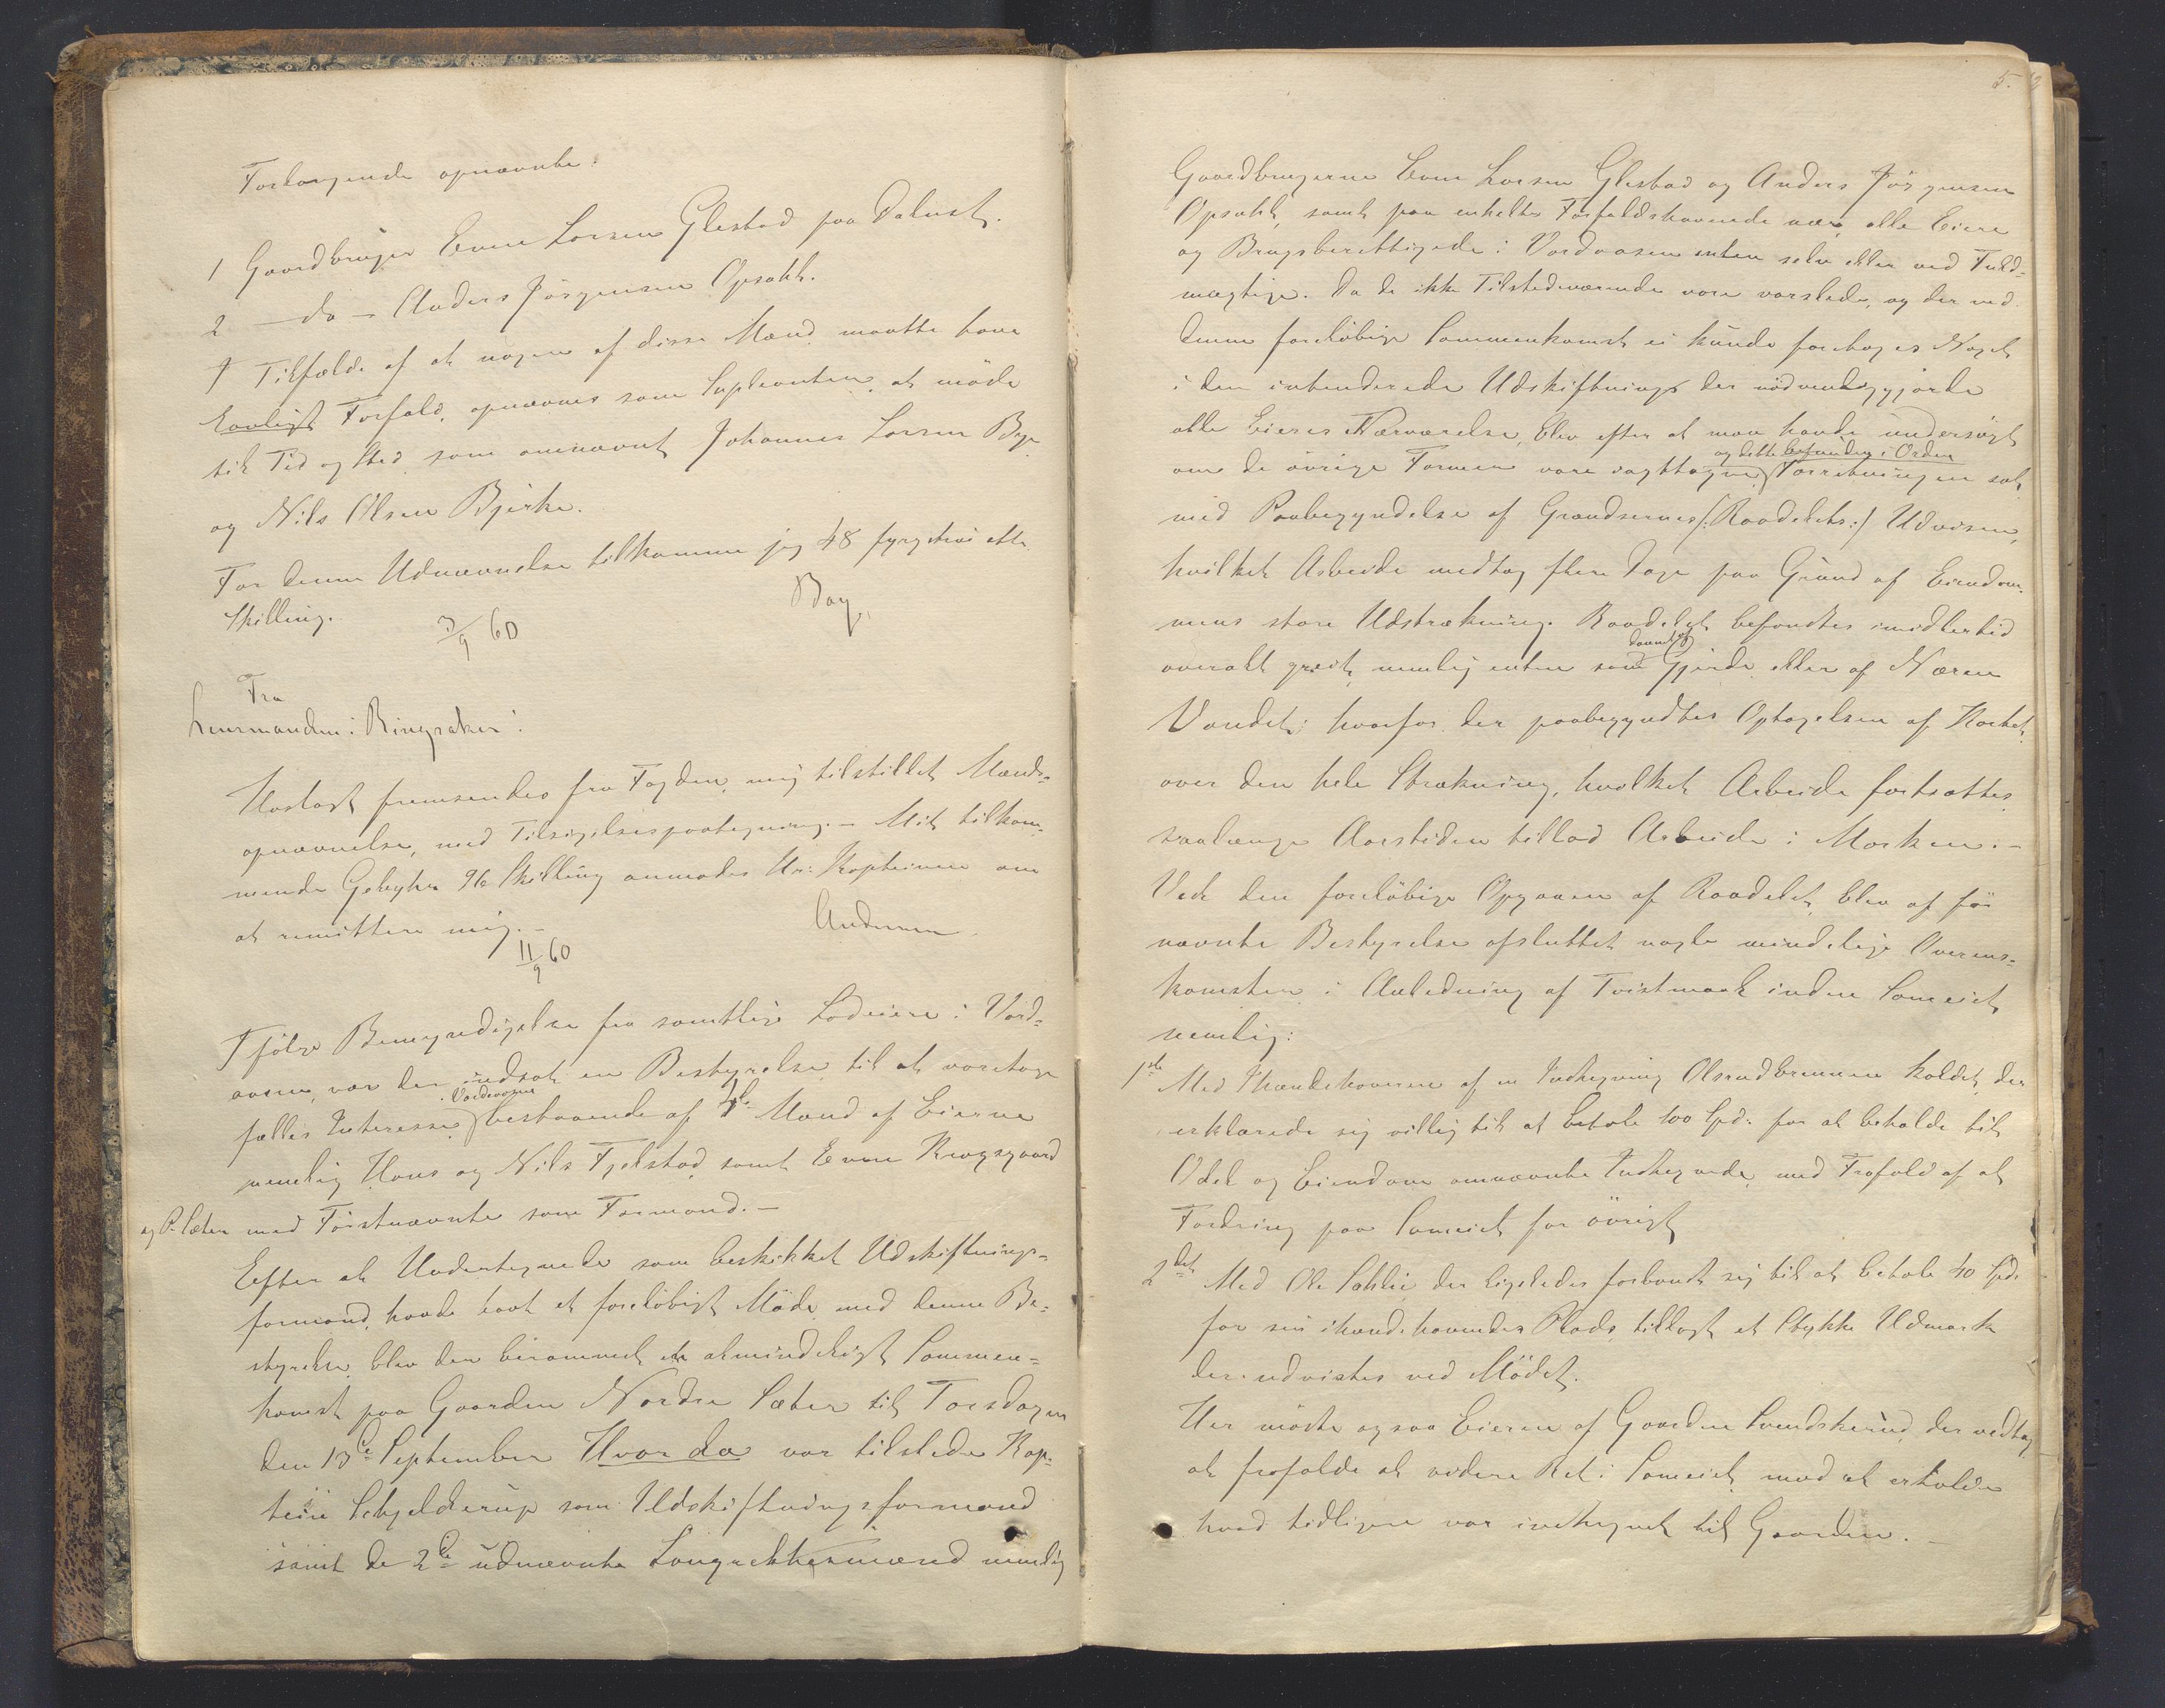 Forlangende opnævnte:
1 Gaardbruger Even Larsen Glestad paa Dalust.
2 — do — Anders Jörgensen Opsahl.
I Tilfælde af at nogen af disse Mænd maatte have
Lovligt Forfald, opnævnes som Supleanter at möde
til Tid og Sted som omnævnt Johannes Larsen Bye
og Nils Olsen Bjerke.
For denne Udnævnelse tilkommer jeg 48 fyrgetivi otte
Skilling.
3/9 60
Bay,
Fra
Lensmanden i Ringsaker:
Hoslagt fremsendes fra Fogden mig tilstillet Mænds-
opnævnelse, med Tilsigelsespaategning. — Mit tilkom-
mende Gebyhr 96 Skilling anmodes Hr: Kapteinen om
at remittere mig. —
Andersen.
11/9 60
Ifölge Bemyndigelse fra samtlige Lodeiere i Vord-
aasen, var der indsat en Bestyrelse til at varetage
i Vordaasens
fælles Interesse, bestaaende af 4de Mænd af Eierne
nemlig Hans og Nils Fjelstad samt Even Krogsgaard
og P. Sæter med Förstnævnte som Formand. —
Efter at Undertegnede som beskikket Udskiftnings-
formand, havde havt et foreløbigt Möde med denne Be-
styrelse, blev der berammet et almindeligt Sammen-
komst paa Gaarden Nordre Sæter til Torsdagen
den 13de September Hvor da var tilstede Kap-
tein Schjelderup som Udskiftningsformand
samt de 2de udnævnte Laugrettesmænd nemlig
5.
Gaardbrugerne Even Larsen Glestad og Anders Jörgensen
Opsahl, samt paa enkelte Forfaldshavende nær, alle Eiere
og Brugsberettigede i Vordaasen enten selv eller ved Fuld-
mægtige. Da de ikke Tilstedeværende vare varslede, og der ved
denne foreløbige Sammenkomst ei kunde foretages Noget
i den intenderede Udskiftning der nödvendiggjorde
alle Eieres Nærværelse, blev efter at man havde undersøgt
og dette befunden i Orden
om de övrige Former vare iagttagne, Forretningen sat
med Paabegyndelse af Grændsernes /:Raadelets:/ Udvisen,
hvilket Arbeide medtog flere Dage paa Grund af Eiendom-
mens store Udstrækning. Raadelet befandtes imidlertid
dannet af
overalt greit, nemlig enten som Gjerde eller af Næren
Vandet; hvorfor der paabegyndtes Optagelsen af Kartet
over den hele Strækning, hvilket Arbeide fortsattes
saalænge Aarstiden tillod Arbeide i Marken. —
Ved den foreløbige Opgaaen af Raadelet, blev af för
nævnte Bestyrelse afsluttet nogle mindelige Overens-
komster i Anledning af Tvistmaal inden Sameiet
nemlig:
1ste Med Ihændehaveren af en Indhegning Olsrudbrenna kaldet, der
erklærede sig villig til at betale 100 Spd. for at beholde til
Odel og Eiendom omnævnte Indhegnede, med Frafald af al
Fordring paa Sameiet for övrigt
2det Med Ole Sahlie, der ligeledes forbandt sig til at betale 40 Spd.
for sin ihændehavendes Plads, tillagt et Stykke Udmark
der udvistes ved Mödet.
Her mödte ogsaa Eieren af Gaarden Svendskerud, der vedtog
at frafalde al videre Ret i Sameiet, mod at erholde
hvad tidligere var indhegnet til Gaarden. —